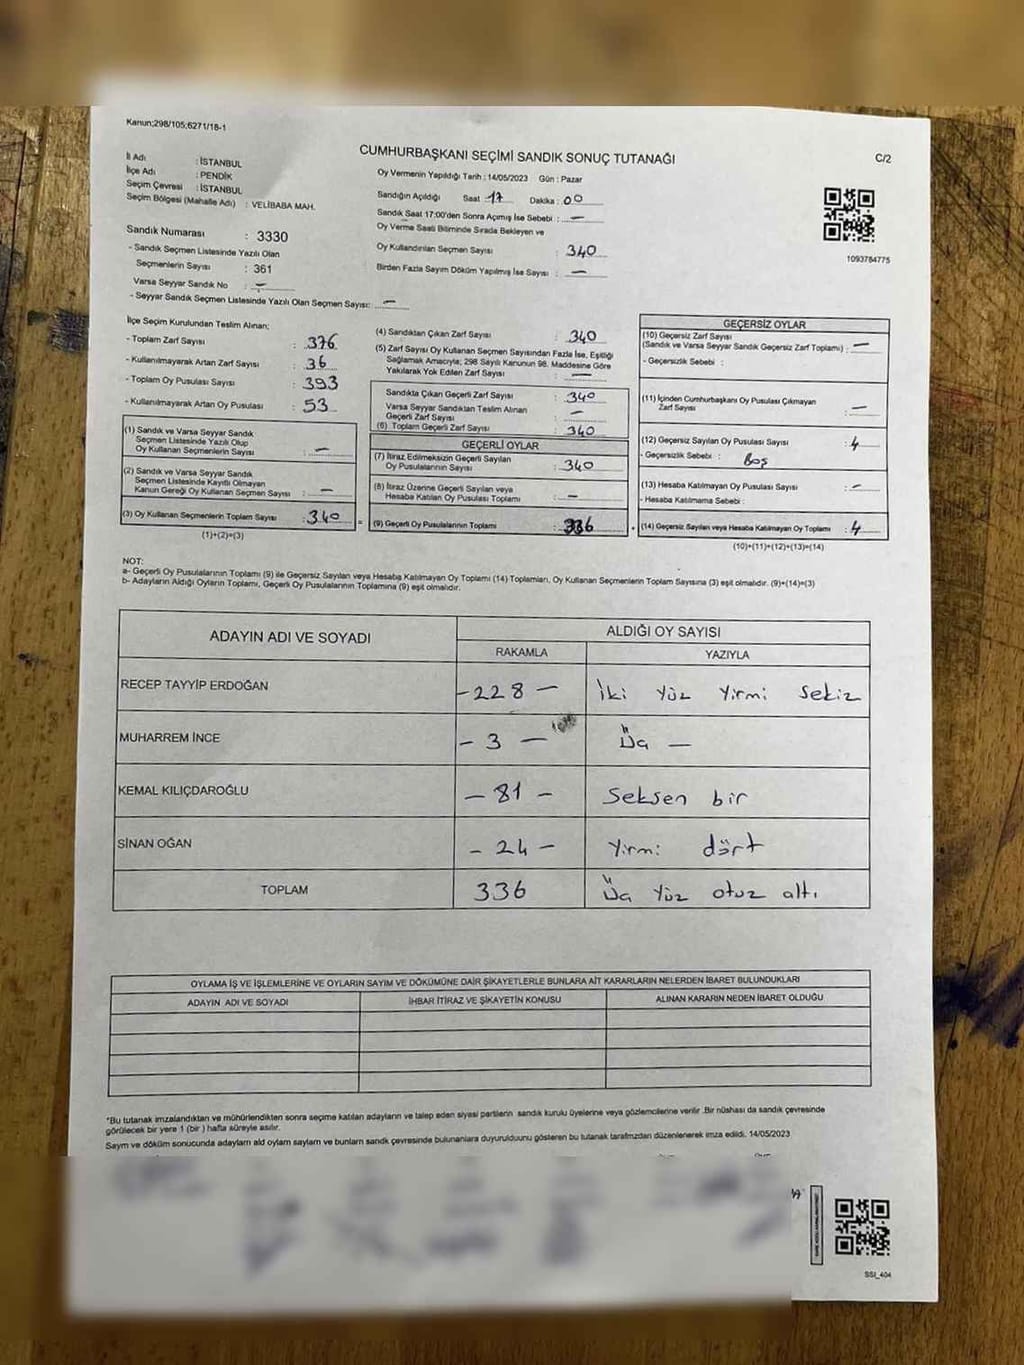 Kanun;298/105;6271/18-1
CUMHURBAŞKANI SEÇİMİ SANDIK SONUÇ TUTANAĞI
C/2
İl Adı : İSTANBUL
İlçe Adı : PENDİK
Seçim Çevresi : İSTANBUL
Seçim Bölgesi (Mahalle Adı) : VELİBABA MAH.
Sandık Numarası : 3330
- Sandık Seçmen Listesinde Yazılı Olan
Seçmenlerin Sayısı : 361
Varsa Seyyar Sandık No : –
- Seyyar Sandık Seçmen Listesinde Yazılı Olan Seçmen Sayısı: –
Oy Vermenin Yapıldığı Tarih : 14/05/2023 Gün : Pazar
Sandığın Açıldığı Saat 17 Dakika : 00
Sandık Saat 17:00'den Sonra Açımış İse Sebebi : –
Oy Verme Saati Bitiminde Sırada Bekleyen ve
Oy Kullandırılan Seçmen Sayısı : 340
Birden Fazla Sayım Döküm Yapılmış İse Sayısı : –
1093784775
İlçe Seçim Kurulundan Teslim Alınan;
- Toplam Zarf Sayısı : 376
- Kullanılmayarak Artan Zarf Sayısı : 36
- Toplam Oy Pusulası Sayısı : 393
- Kullanılmayarak Artan Oy Pusulası : 53
(1) Sandık ve Varsa Seyyar Sandık
Seçmen Listesinde Yazılı Olup
Oy Kullanan Seçmenlerin Sayısı : –
(2) Sandık ve Varsa Seyyar Sandık
Seçmen Listesinde Kayıtlı Olmayan
Kanun Gereği Oy Kullanan Seçmen Sayısı : –
(3) Oy Kullanan Seçmenlerin Toplam Sayısı : 340
(1)+(2)=(3)
(4) Sandıktan Çıkan Zarf Sayısı : 340
(5) Zarf Sayısı Oy Kullanan Seçmen Sayısından Fazla İse, Eşitliği
Sağlamak Amacıyla; 298 Sayılı Kanunun 98. Maddesine Göre
Yakılarak Yok Edilen Zarf Sayısı : –
Sandıkta Çıkan Geçerli Zarf Sayısı : 340
Varsa Seyyar Sandıktan Teslim Alınan
Geçerli Zarf Sayısı : –
(6) Toplam Geçerli Zarf Sayısı : 340
GEÇERLİ OYLAR
(7) İtiraz Edilmeksizin Geçerli Sayılan
Oy Pusulalarının Sayısı : 340
(8) İtiraz Üzerine Geçerli Sayılan veya
Hesaba Katılan Oy Pusulası Toplamı : –
= (9) Geçerli Oy Pusulalarının Toplamı : 336
GEÇERSİZ OYLAR
(10) Geçersiz Zarf Sayısı
(Sandık ve Varsa Seyyar Sandık Geçersiz Zarf Toplamı) : –
- Geçersizlik Sebebi :
(11) İçinden Cumhurbaşkanı Oy Pusulası Çıkmayan
Zarf Sayısı : –
(12) Geçersiz Sayılan Oy Pusulası Sayısı : 4
- Geçersizlik Sebebi : Boş
(13) Hesaba Katılmayan Oy Pusulası Sayısı : –
- Hesaba Katılmama Sebebi :
+ (14) Geçersiz Sayılan veya Hesaba Katılmayan Oy Toplamı : 4
(10)+(11)+(12)+(13)=(14)
NOT:
a- Geçerli Oy Pusulalarının Toplamı (9) ile Geçersiz Sayılan veya Hesaba Katılmayan Oy Toplamı (14) Toplamları, Oy Kullanan Seçmenlerin Toplam Sayısına (3) eşit olmalıdır. (9)+(14)=(3)
b- Adayların Aldığı Oyların Toplamı, Geçerli Oy Pusulalarının Toplamına (9) eşit olmalıdır.
ADAYIN ADI VE SOYADI ALDIĞI OY SAYISI
RAKAMLA YAZIYLA
RECEP TAYYİP ERDOĞAN – 228 – İki Yüz Yirmi Sekiz
MUHARREM İNCE – 3 – Üç –
KEMAL KILIÇDAROĞLU – 81 – Seksen bir
SİNAN OĞAN – 24 – Yirmi dört
TOPLAM 336 Üç Yüz otuz altı
OYLAMA İŞ VE İŞLEMLERİNE VE OYLARIN SAYIM VE DÖKÜMÜNE DAİR ŞİKAYETLERLE BUNLARA AİT KARARLARIN NELERDEN İBARET BULUNDUKLARI
ADAYIN ADI VE SOYADI İHBAR İTİRAZ VE ŞİKAYETİN KONUSU ALINAN KARARIN NEDEN İBARET OLDUĞU
*Bu tutanak imzalandıktan ve mühürlendikten sonra seçime katılan adayların ve talep eden siyasi partilerin sandık kurulu üyelerine veya gözlemcilerine verilir .Bir nüshası da sandık çevresinde
görülecek bir yere 1 (bir ) hafta süreyle asılır.
Sayım ve döküm sonucunda adayların aldı oyların sayıların ve bunların sandık çevresinde bulunanlara duyurulduunu gösteren bu tutanak tarafımızdan düzenlenerek imza edildi. 14/05/2023
SSI_404